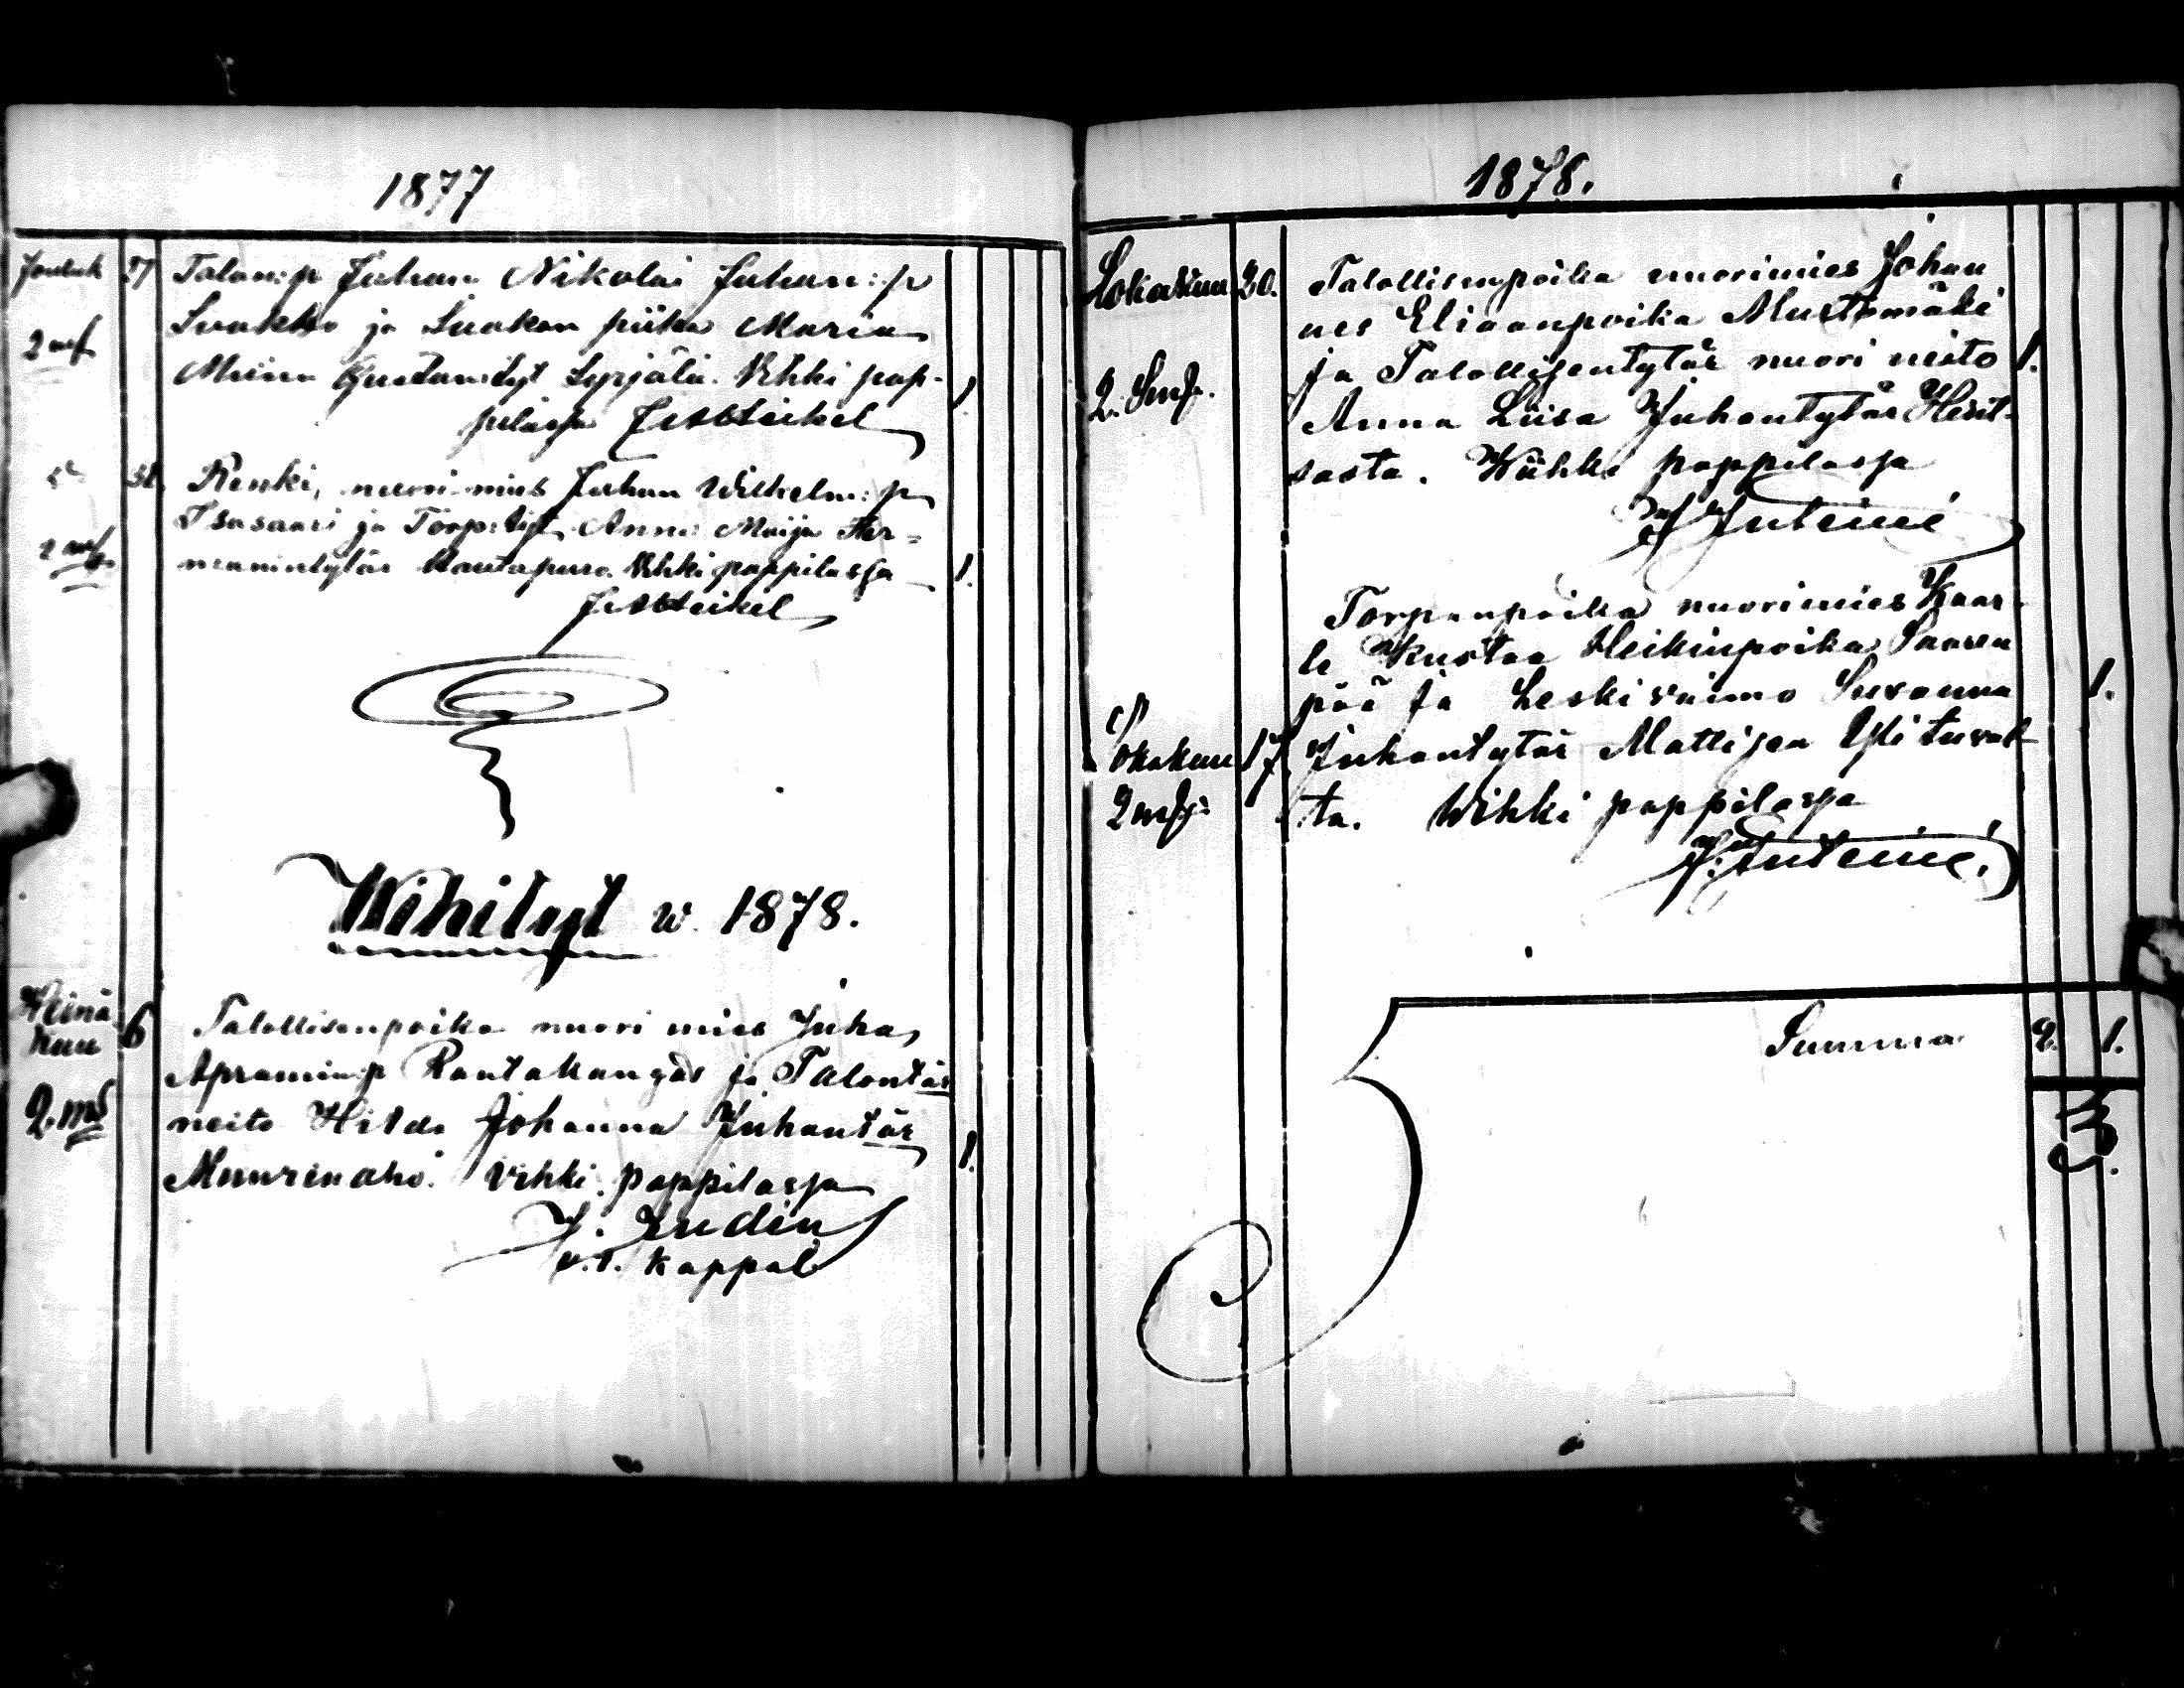 1877
Jouluk 27 Talon:p Juhan Nikolai Juhan:p
2 mf Luokko ja Luokan piika Maria
Miina Kustaantyt Syrjälä. Vihki pap- 1
pilassa
31. Renki, nuori mies Juhan Wilhelm:p
2 mf Isosaari ja Torp:tyt Anna Maija Her-
mannintytär Rautapuro Vihki pappilassa 1.
Wihityt w. 1878.
Heinä
kuu 6 Talollisenpoika nuori mies Juha
Apramin:p Rantakangas ja Talontär
2. mf neito Hilda Johanna Juhantär 1.
Muurinaho. Vihki pappilassa
J. Ludin
v.t. kappal
1878.
Lokakuu 20. Talollisenpoika nuorimies Johan
nes Eliaanpoika Mustamäki
ja Talollisentytär nuori neito 1.
2. Anna Liisa Juhantytär
sasta. Wihki pappilassa
Torpanpoika nuorimies Kaar
le Kustaa Heikinpoika Saaren
pää ja Leskivaimo Susanna 1.
17 Juhantytär Matlisen Ylituval
ta. Wihki pappilassa
Summa 2. 1.
3.